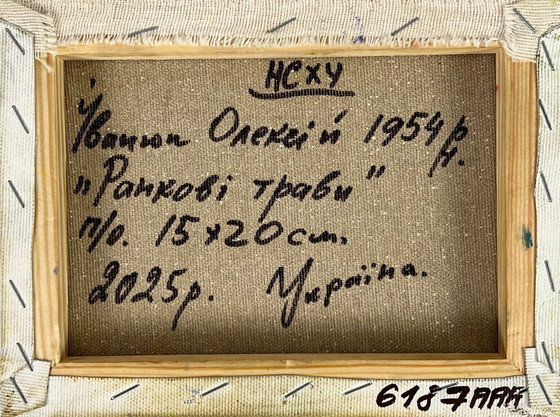 НСХУ
Іванюк Олексій 1954 р.н.
"Ранкові трави"
п/о. 15×20см.
2025р. Україна.
6187ААК